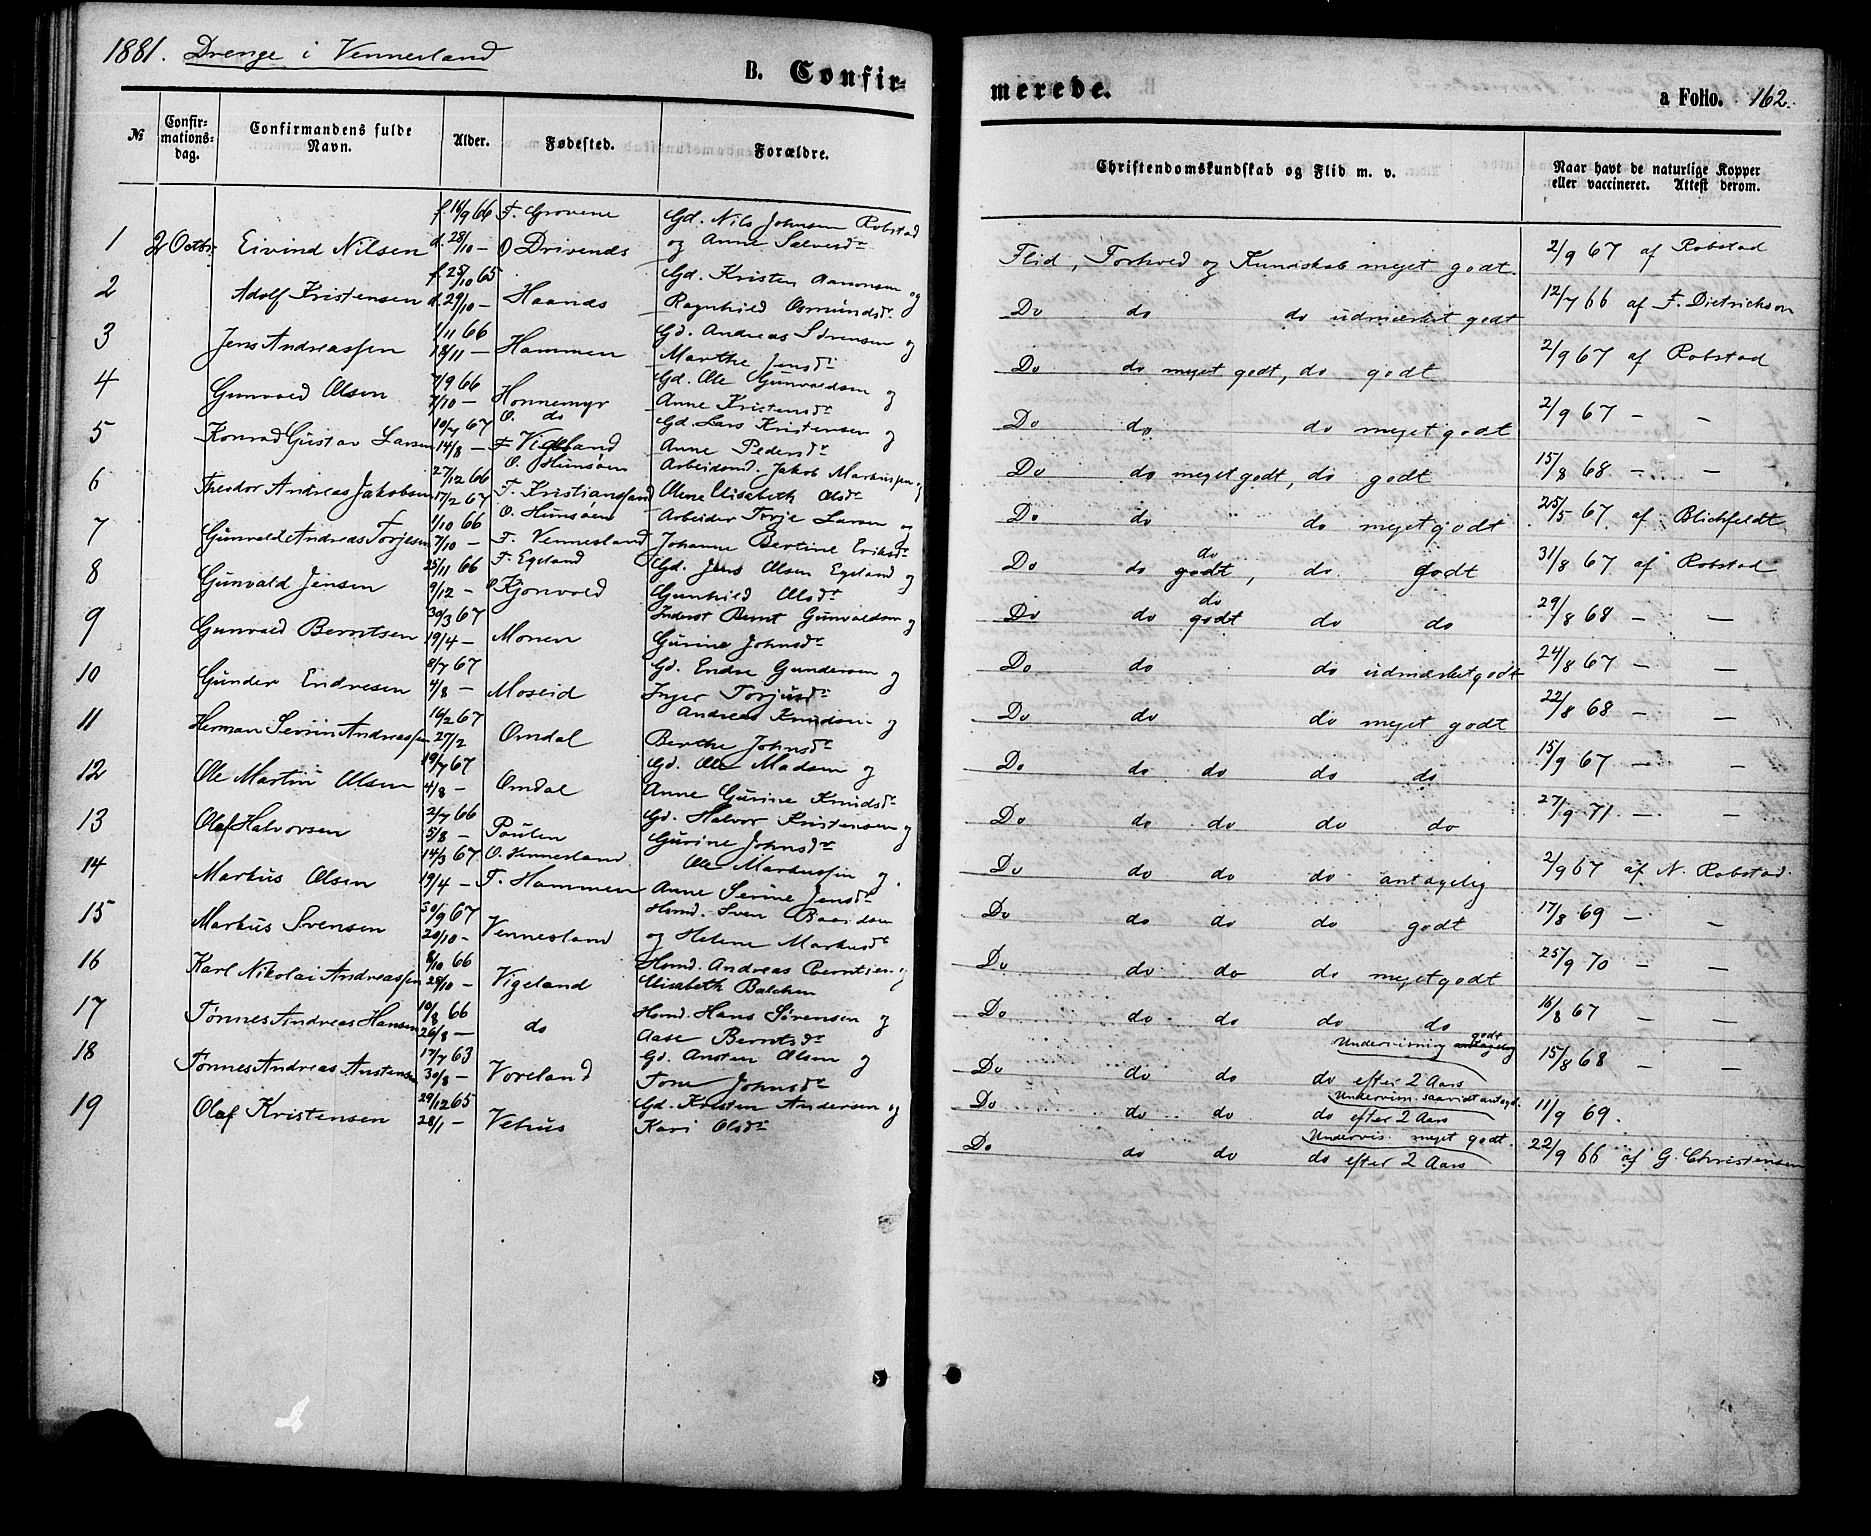 1881. Drenge i Vennesland
B. Confir-
merede.
a Folio. 162.
№
Confir-
mations-
dag.
Confirmandens fulde
Navn.
Alder.
Fødested.
Forældre.
Christendomskundskab og Flid m. v.
Naar havt de naturlige Kopper
eller vaccineret. Attest derom.
f. 16/9 66 F. Grovene Gd. Nils Johnsen Robstad
1 2 Octbr. Eivind Nilsen d. 28/10 — O Drivenes og Anne Salvesdr
Flid, Forhold og Kundskab meget godt. 2/9 67 af Robstad
f. 25/10 65 Gd. Kristen Aanonsen og
2 Adolf Kristensen d. 29/10 — Haanes Ragnhild Osmundsdr.
Do do do udmærket godt 12/7 66 af F. Dietrichson
1/11 66 Gd. Andreas Sörensen og
3 Jens Andreassen 18/11 — Hammen Marthe Jensdr
Do do meget godt, do godt 2/9 67 af Robstad
7/9 66 Gd. Ole Gunvaldsen og
4 Gunvald Olsen 7/10 — Honnemyr Anne Kristensdr
Do do do meget godt 2/9 67 — —
10/7 67 O. do Gd. Lars Kristensen og
5 Konrad Gustav Larsen 14/8 — F Vigeland Anne Pedersdr
Do do meget godt, do godt 15/8 68 — —
27/12 66 O. Hunsöen Arbeidsmd. Jakob Martinssen og
6 Theodor Andreas Jakobsen 17/2 67 F. Kristianssand Olene Elisabeth Olsdr
Do do " do meget godt 25/5 67 af Blichfeldt
1/10 66 O. Hunsöen Arbeider Torje Larsen og
7 Gunvald Andreas Torjesen 7/10 — F. Vennesland Johanne Bertine Eriksdr
Do do do godt, do godt 31/8 67 af Robstad
25/11 66 F. Egeland Gd. Jens Olsen Egeland og
8 Gunvald Jensen 9/12 — O Kjonvold Gunhild Olsdr
Do do do godt do do 29/8 68 — —
30/3 67 Inderst Bernt Gunvaldsen og
9 Gunvald Berntsen 19/4 — Monen Gurine Johnsdr
Do do do udmærket godt 24/8 67 — —
8/7 67 Gd. Endre Gundersen og
10 Gunder Endresen 4/8 — Moseid Inger Torjusdr
Do do do meget godt 22/8 68 — —
16/2 67 Andreas Knudsen og
11 Herman Severin Andreassen 27/2 Omdal Berthe Johnsdr
Do do do do do 15/9 67 — —
19/7 67 Gd. Ole Madsen og
12 Ole Martin Olsen 4/8 — Omdal Anne Gurine Knudsdr
Do do do do do 27/9 71 — —
2/7 66 Gd. Halvor Kristensen og
13 Olaf Halvorsen 5/8 — Paulen Gurine Johnsdr
Do do do do antagelig 2/9 67 af N. Robstad.
14/3 67 O. Vennesland Ole Markussen og
14 Markus Olsen 19/4 — F. Hammen Anne Serine Jensdr
Do do do do godt 17/8 69 — —
30/9 67 Hsmd. Sven Baardsen
15 Markus Svensen 20/10 — Vennesland og Helene Markusdr
Do do do do meget godt 25/9 70 — —
8/10 66 Hsmd. Andreas Berntsen og
16 Karl Nikolai Andreassen 28/10 — Vigeland Elisabeth Balchen
Do do do do do 16/8 67 — —
10/8 66 Hsmd. Hans Sörensen og
17 Tönnes Andreas Hansen 26/8 — do Aase Berntsdr
Undervisning antagelig godt
Do do do do efter 2 Aars 15/8 68 — —
17/7 63 Gd. Ansten Olsen og
18 Tönnes Andreas Anstensen 30/8 — Voreland Tone Johnsdr
Undervisn. saavidt antagl.
Do do do do efter 2 Aars 11/9 69.
29/12 65 Gd. Kristen Andersen og
19 Olaf Kristensen 28/1 — Vehus Kari Olsdr
Undervis. meget godt.
Do do do do efter 2 Aars 22/9 66 af G. Christensen